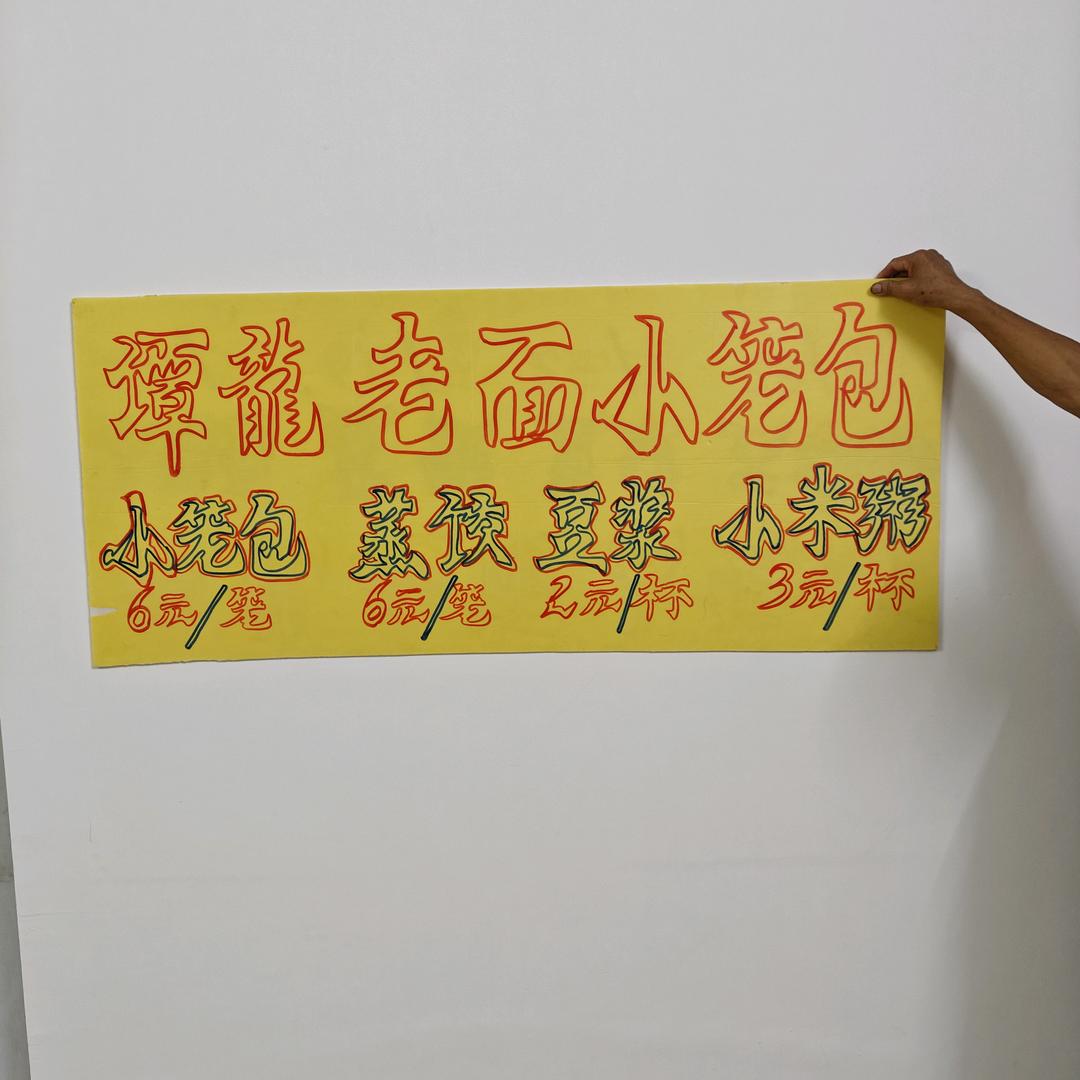 谭龍 老面小笼包
小笼包 蒸饺 豆浆 小米粥
6元/笼 6元/笼 2元/杯 3元/杯